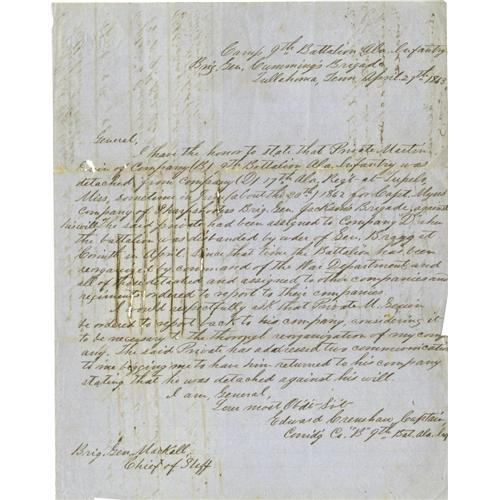 Camp 9th Battalion Ala. Infantry
Brig. Gen. Cumming's Brigade
Tullahoma, Tenn April 27th 1863
General,
I have the honor to state that Private Martin
of Company (B) 9th Battalion Ala. Infantry was
detached from Company (D) 17th Ala. Regt at Tupelo,
Miss, sometime in about the 20th 1862 for Capt.
Company of Sharpshooters Brig. Gen. Jackson's Brigade, against
his will, he said private had been assigned to Company D when
the battalion was disbanded by order of Gen. Bragg at
Corinth in April. Since that time the Battalion has been
reorganized by command of the War Department and
all of those detached and assigned to other companies and
regiments ordered to report to their companies.
I would respectfully ask that Private M.
be ordered to report back to his company, considering it
to be necessary to the thorough reorganization of my comp
any. The said Private has addressed two communications
to me begging me to have him returned to his company
stating that he was detached against his will.
I am, General,
Your most Obdt Svt
Edward Crenshaw, Captain
Comdg Co. "B" 9th Bat. Ala. Inf
Brig. Gen. Mackall,
Chief of Staff